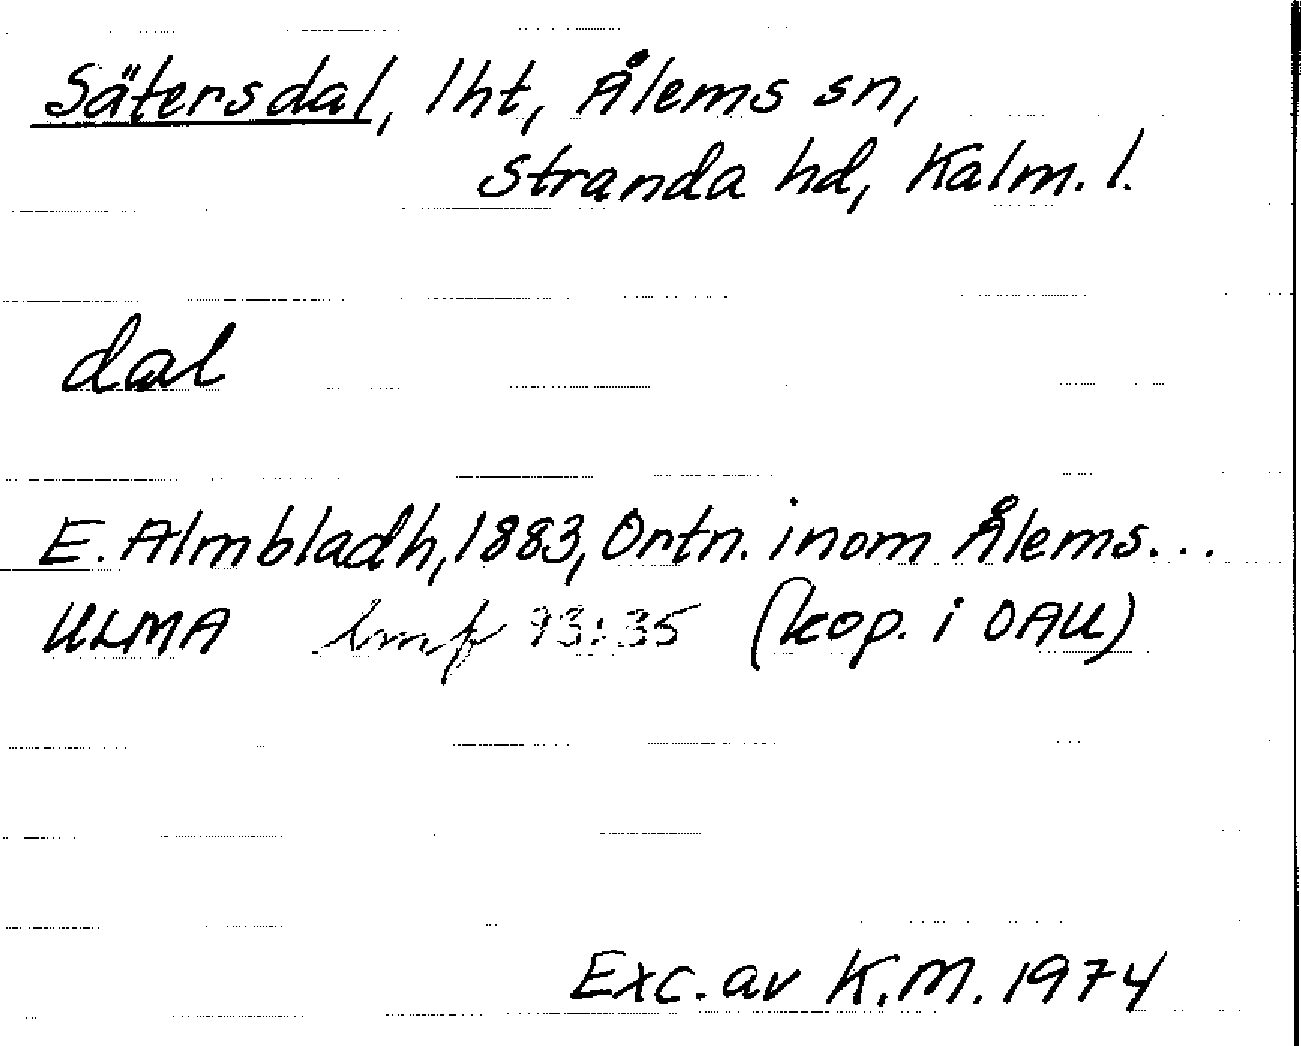 Sätersdal, lht, Ålems sn,
Stranda hd, Kalm. l.
dal
E. Almbladh, 1883, Ortn. inom Ålems...
ULMA bmf 93:35 (kop. i OAU)
Exc. av K.M. 1974